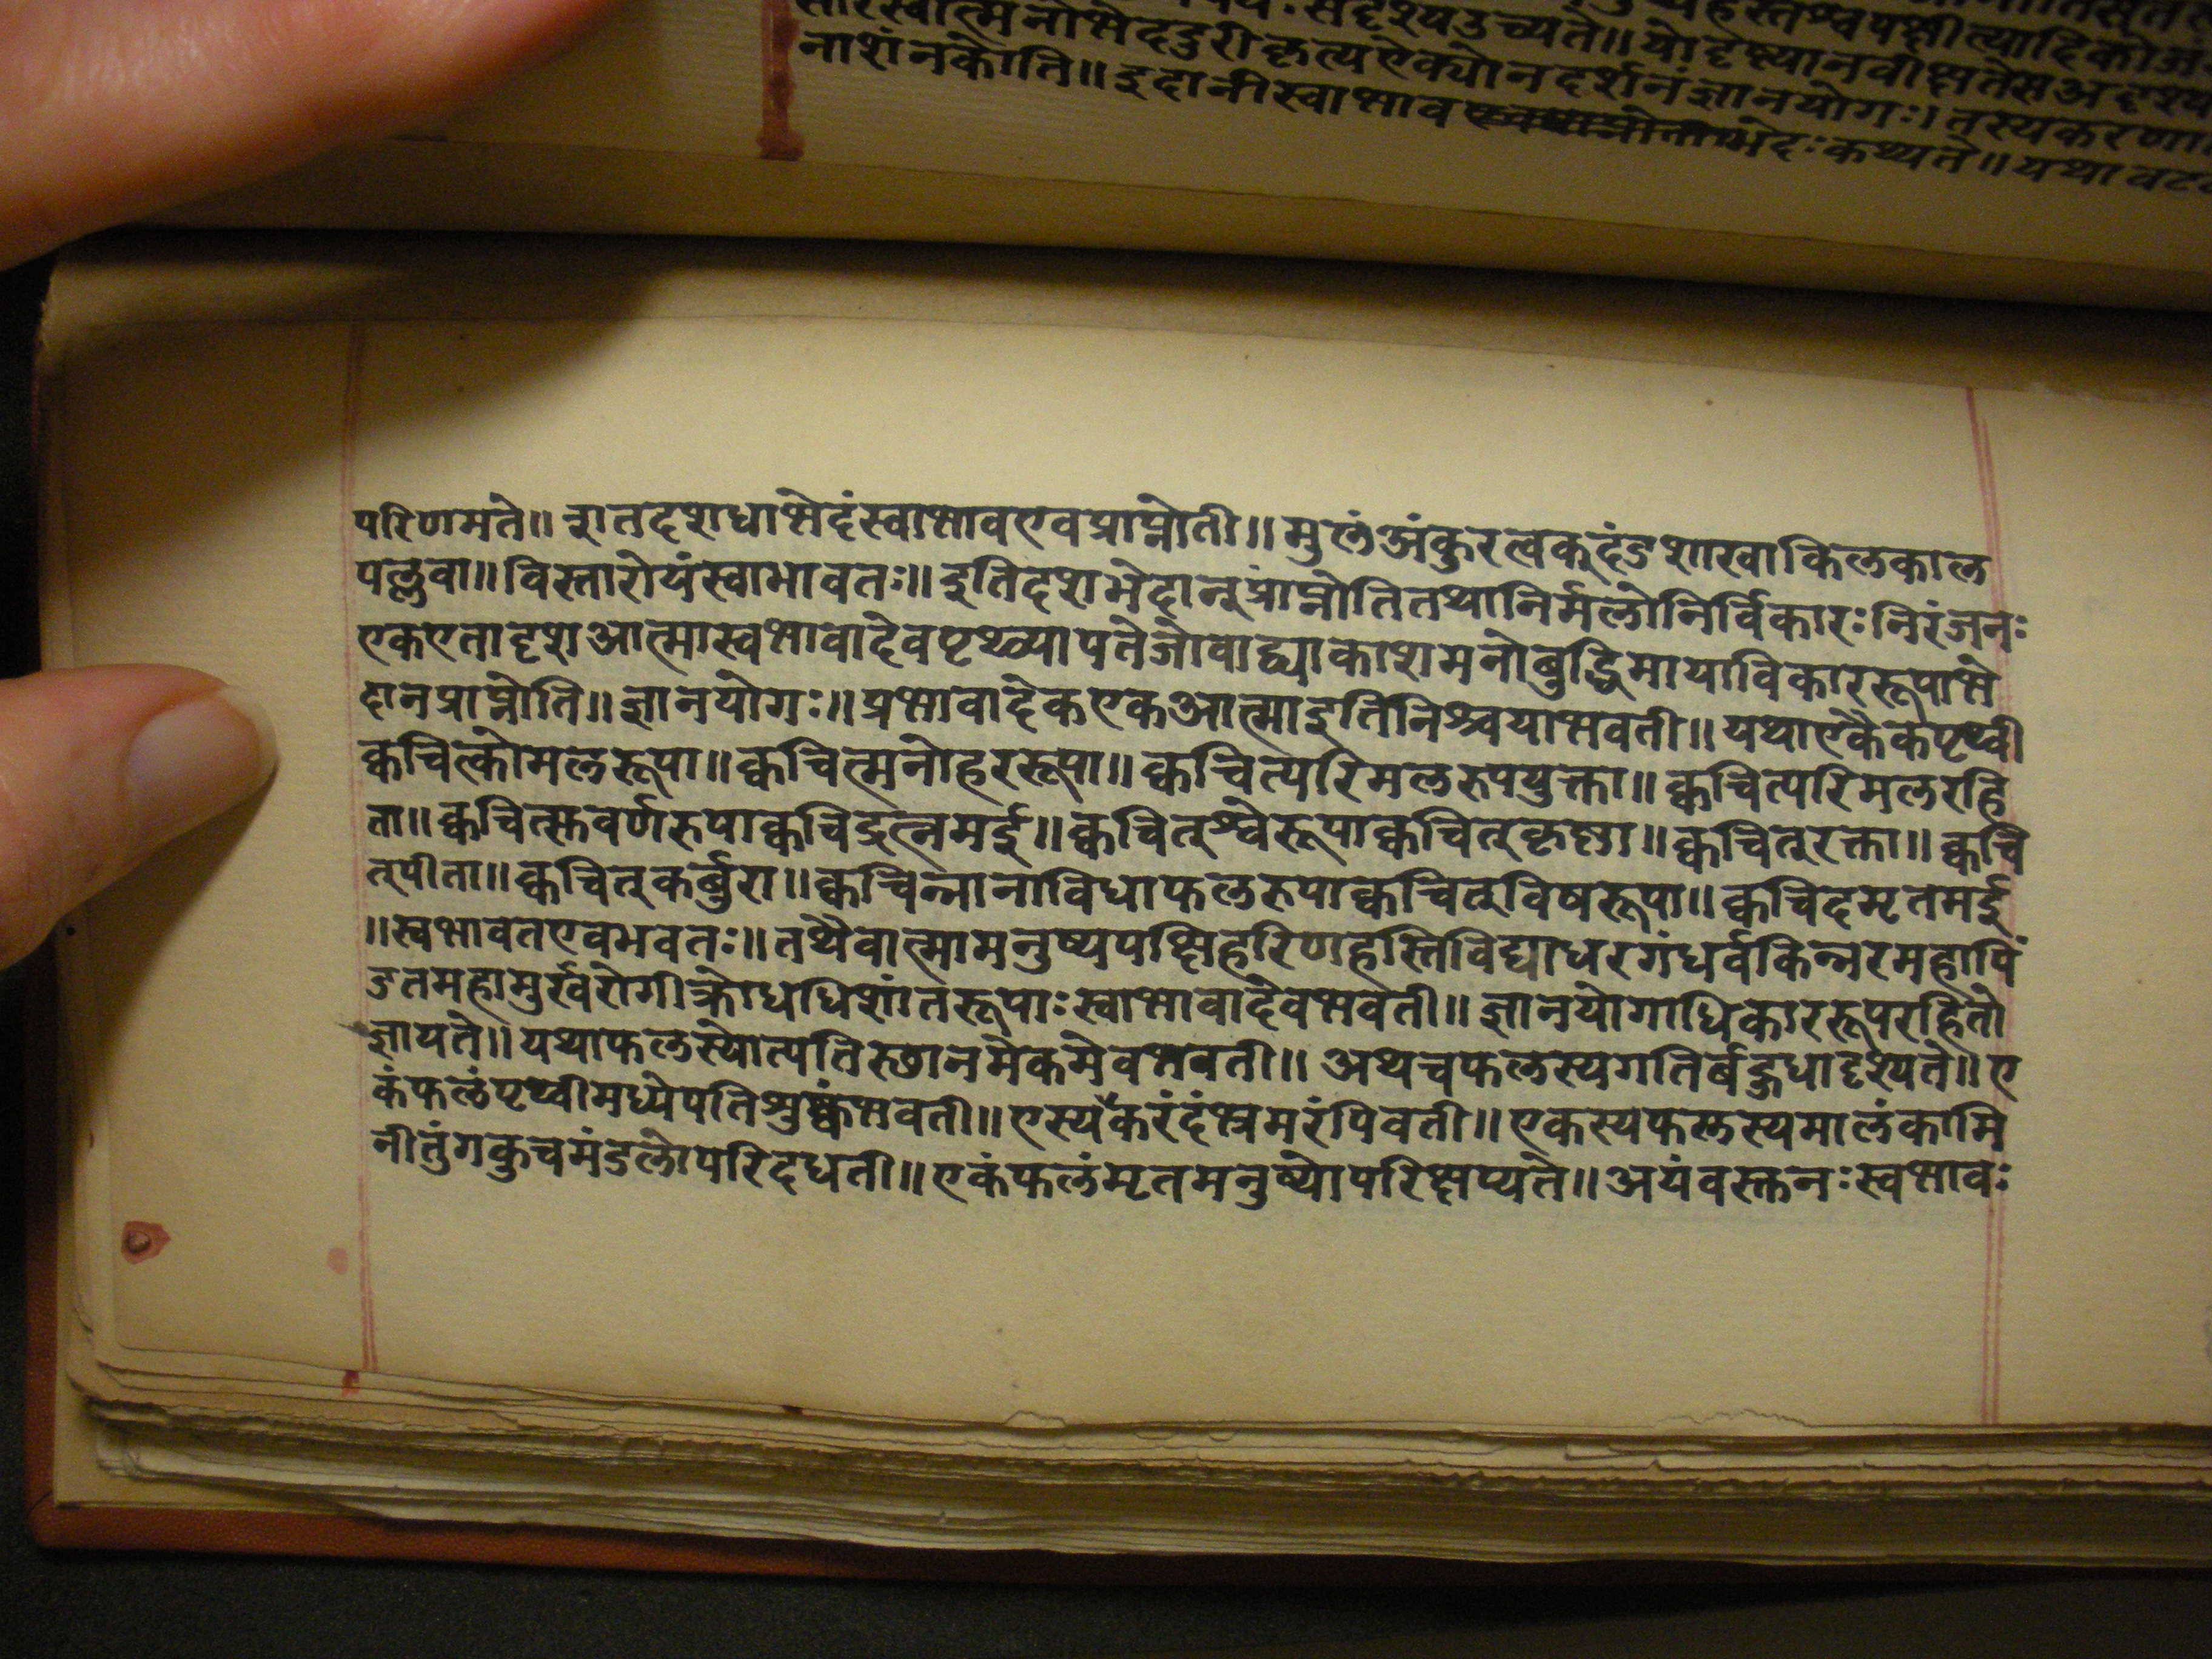 नाशंनकोति॥इदानीस्वाभाव भेदःकथ्यते॥यथा
परिणमते॥ शतदशधाभेदंस्वाभावएवप्राप्नोती॥मुलंअंकुरत्वक्दंडशाखाकिलकाल
पल्लवा॥विस्तारोयंस्वाभावतः॥इतिदशभेदान्प्राप्नोतितथानिर्मलोनिर्विकारःनिरंजनः
एकएतादृशआत्मास्वभावादेवपृथ्व्यापतेजोवाद्याकाशमनोबुद्धिमायाविकाररूपाभे
दानप्राप्नोति॥ज्ञानयोगः॥प्रभावादेकएकआत्माइतिनिश्चयाभवती॥यथाएकैकपृथ्वी
क्वचित्कोमलरूपा॥क्वचित्मनोहररूपा॥क्वचित्परिमलरुपयुक्ता॥क्वचित्परिमलरहि
ता॥क्वचित्सुवर्णरुपाक्वचिद्रत्नमई॥क्वचित्श्वेरूपाक्वचित्कृष्णा॥क्वचित्रक्ता॥क्वचि
त्पीता॥क्वचित्कर्बुरा॥क्वचिन्नानाविधाफलरुपाक्वचित्विषरूपा॥क्वचिदमृतमई
॥स्वभावतएवभवतः॥तथैवात्मामनुष्यपक्षिहरिणहस्तिविद्याधरगंधर्वकिन्नरमहापिं
डतमहामुर्खरोगीक्रोधधिशांतरूपाःस्वाभावादेवभवती॥ज्ञानयोगाधिकाररूपरहितो
ज्ञायते॥यथाफलस्योत्पतिस्छानमेकमेवभवती॥अथचफलस्यगतिर्बहुधादृश्यते॥ए
कंफलंपृथ्वीमध्येपतिशुष्कंभवती॥एस्यकरंदंभ्रमरंपिवती॥एकस्यफलस्यमालंकामि
नीतुंगकुचमंडलोपरिदधती॥एकंफलंमृतमनुष्योपरिक्षप्यते॥अयंवस्तुनःस्वभावः